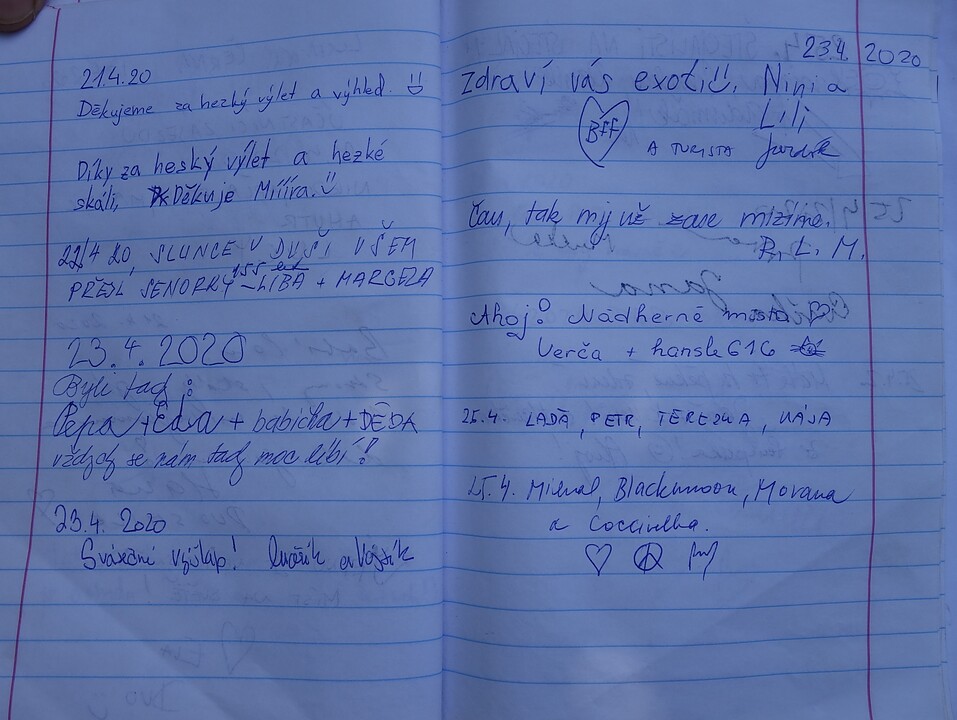 21.4.20
Děkujeme za hezký výlet a výhled.
Díky za heský výlet a hezké
skáli, Děkuje Mííííra.
22/4 20, SLUNCE V DUŠI VŠEM
PŘEJÍ SENORKY 155 let LÍBA + MARCELA
23.4.2020
Byli tady:
Pepa + Eda + babička + DĚDA
vždycky se nám tady moc líbí!
23.4. 2020
Sváteční výšlap! a Vojtík
23.4. 2020
Zdraví vás exoti!. Nini a
Lili
Bff
A TURISTA
Čau, tak my už zase mizíme.
R, L, M.
Ahoj! Nádherné místo
Verča + hansle616
25.4. LAĎA, PETR, TEREZKA, KÁJA
25.4. Blackmoon, Morana
a Coccinelka.